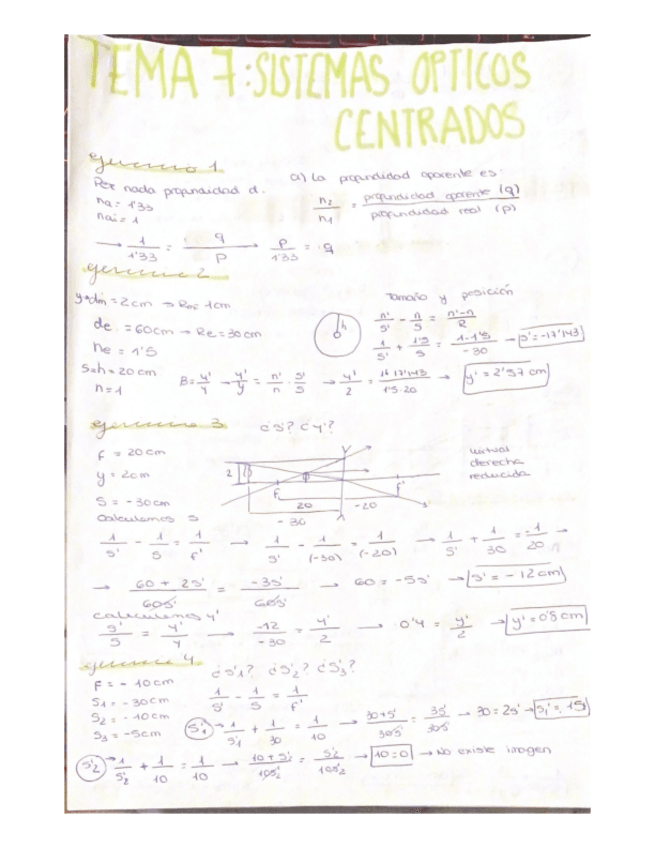 TEMA 7: SISTEMAS OPTICOS
CENTRADOS
ejercicio 1
Pez nada profundidad d.
na = 1'33
nai = 1
a) La profundidad aparente es:
n2/n1 = profundidad aparente (q)/profundidad real (p)
→ 1/1'33 = q/p → p/1'33 = q
ejercicio 2
= 2cm → 1cm
de = 60cm → Re = 30cm
ne = 1'5
S=h = 20cm
n = 1
h
Tamaño y posición
n'/s' - n/s = n'-n/R
1/s' + 1'5/s = 1-1'5/-30 → s' = -17'143
B = y'/y → y'/y = n'/n · s'/s → y'/2 = 17'143/1'5·20 → y' = 2'57 cm
ejercicio 3
¿s'? ¿y'?
f = 20cm
y = 2cm
s = -30cm
2
F
F'
20
-20
-30
virtual
derecha
reducida
Calculemos s
1/s' - 1/s = 1/f' → 1/s' - 1/(-30) = 1/(-20) → 1/s' + 1/30 = -1/20 →
→ 60 + 2s'/60s' = -3s'/60s' → 60 = -5s' → s' = -12cm
calculemos y'
s'/s = y'/y → -12/-30 = y'/2 → 0'4 = y'/2 → y' = 0'8cm
ejercicio 4
¿s'1? ¿s'2? ¿s'3?
F = -10cm
S1 = -30cm
S2 = -10cm
S3 = -5cm
1/s' - 1/s = 1/f'
s'1 → 1/s'1 + 1/30 = 1/10 → 30+s'/30s' = 3s'/30s' → 30 = 2s' → s1' = 15
s'2 → 1/s'2 + 1/10 = 1/10 → 10+s'2/10s'2 = s'2/10s'2 → 10=0 → No existe imagen